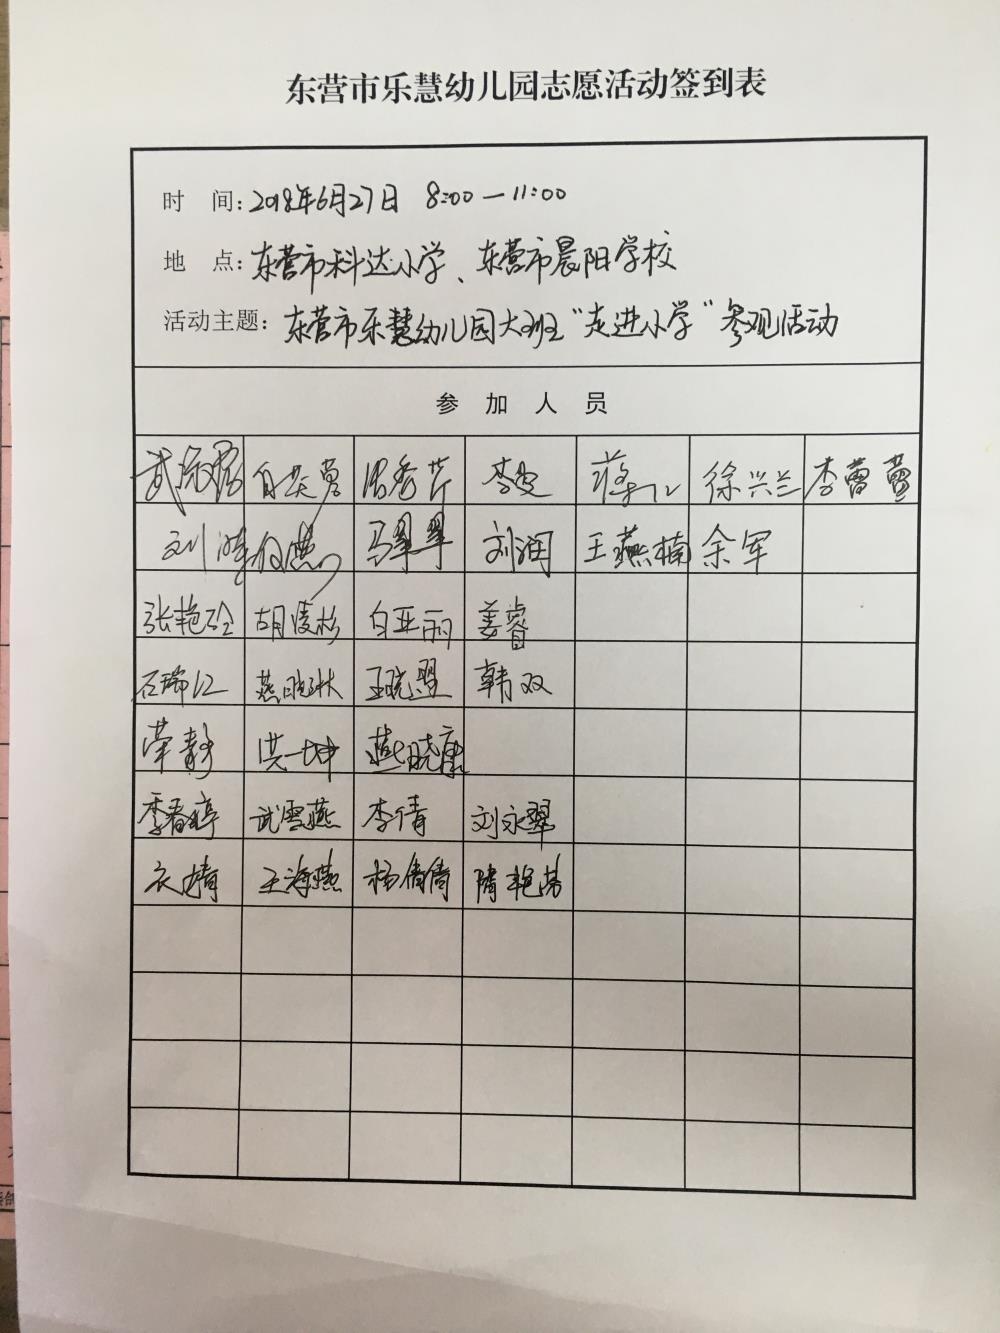 东营市乐慧幼儿园志愿活动签到表
时 间：2018年6月27日 8:00—11:00
地 点：东营市科达小学、东营市晨阳学校
活动主题：东营市乐慧幼儿园大班“走进小学”参观活动
参 加 人 员
李雯 徐兴兰 李蕾蕾
马翠翠 刘润 王燕楠 余军
胡凌杉 白亚丽 姜睿
石瑞江 燕晓琳 王晓翠 韩双
荣静 洪一坤 燕晓康
季春婷 武雪燕 李倩 刘永翠
衣婧 王海燕 杨倩倩 隋艳芬